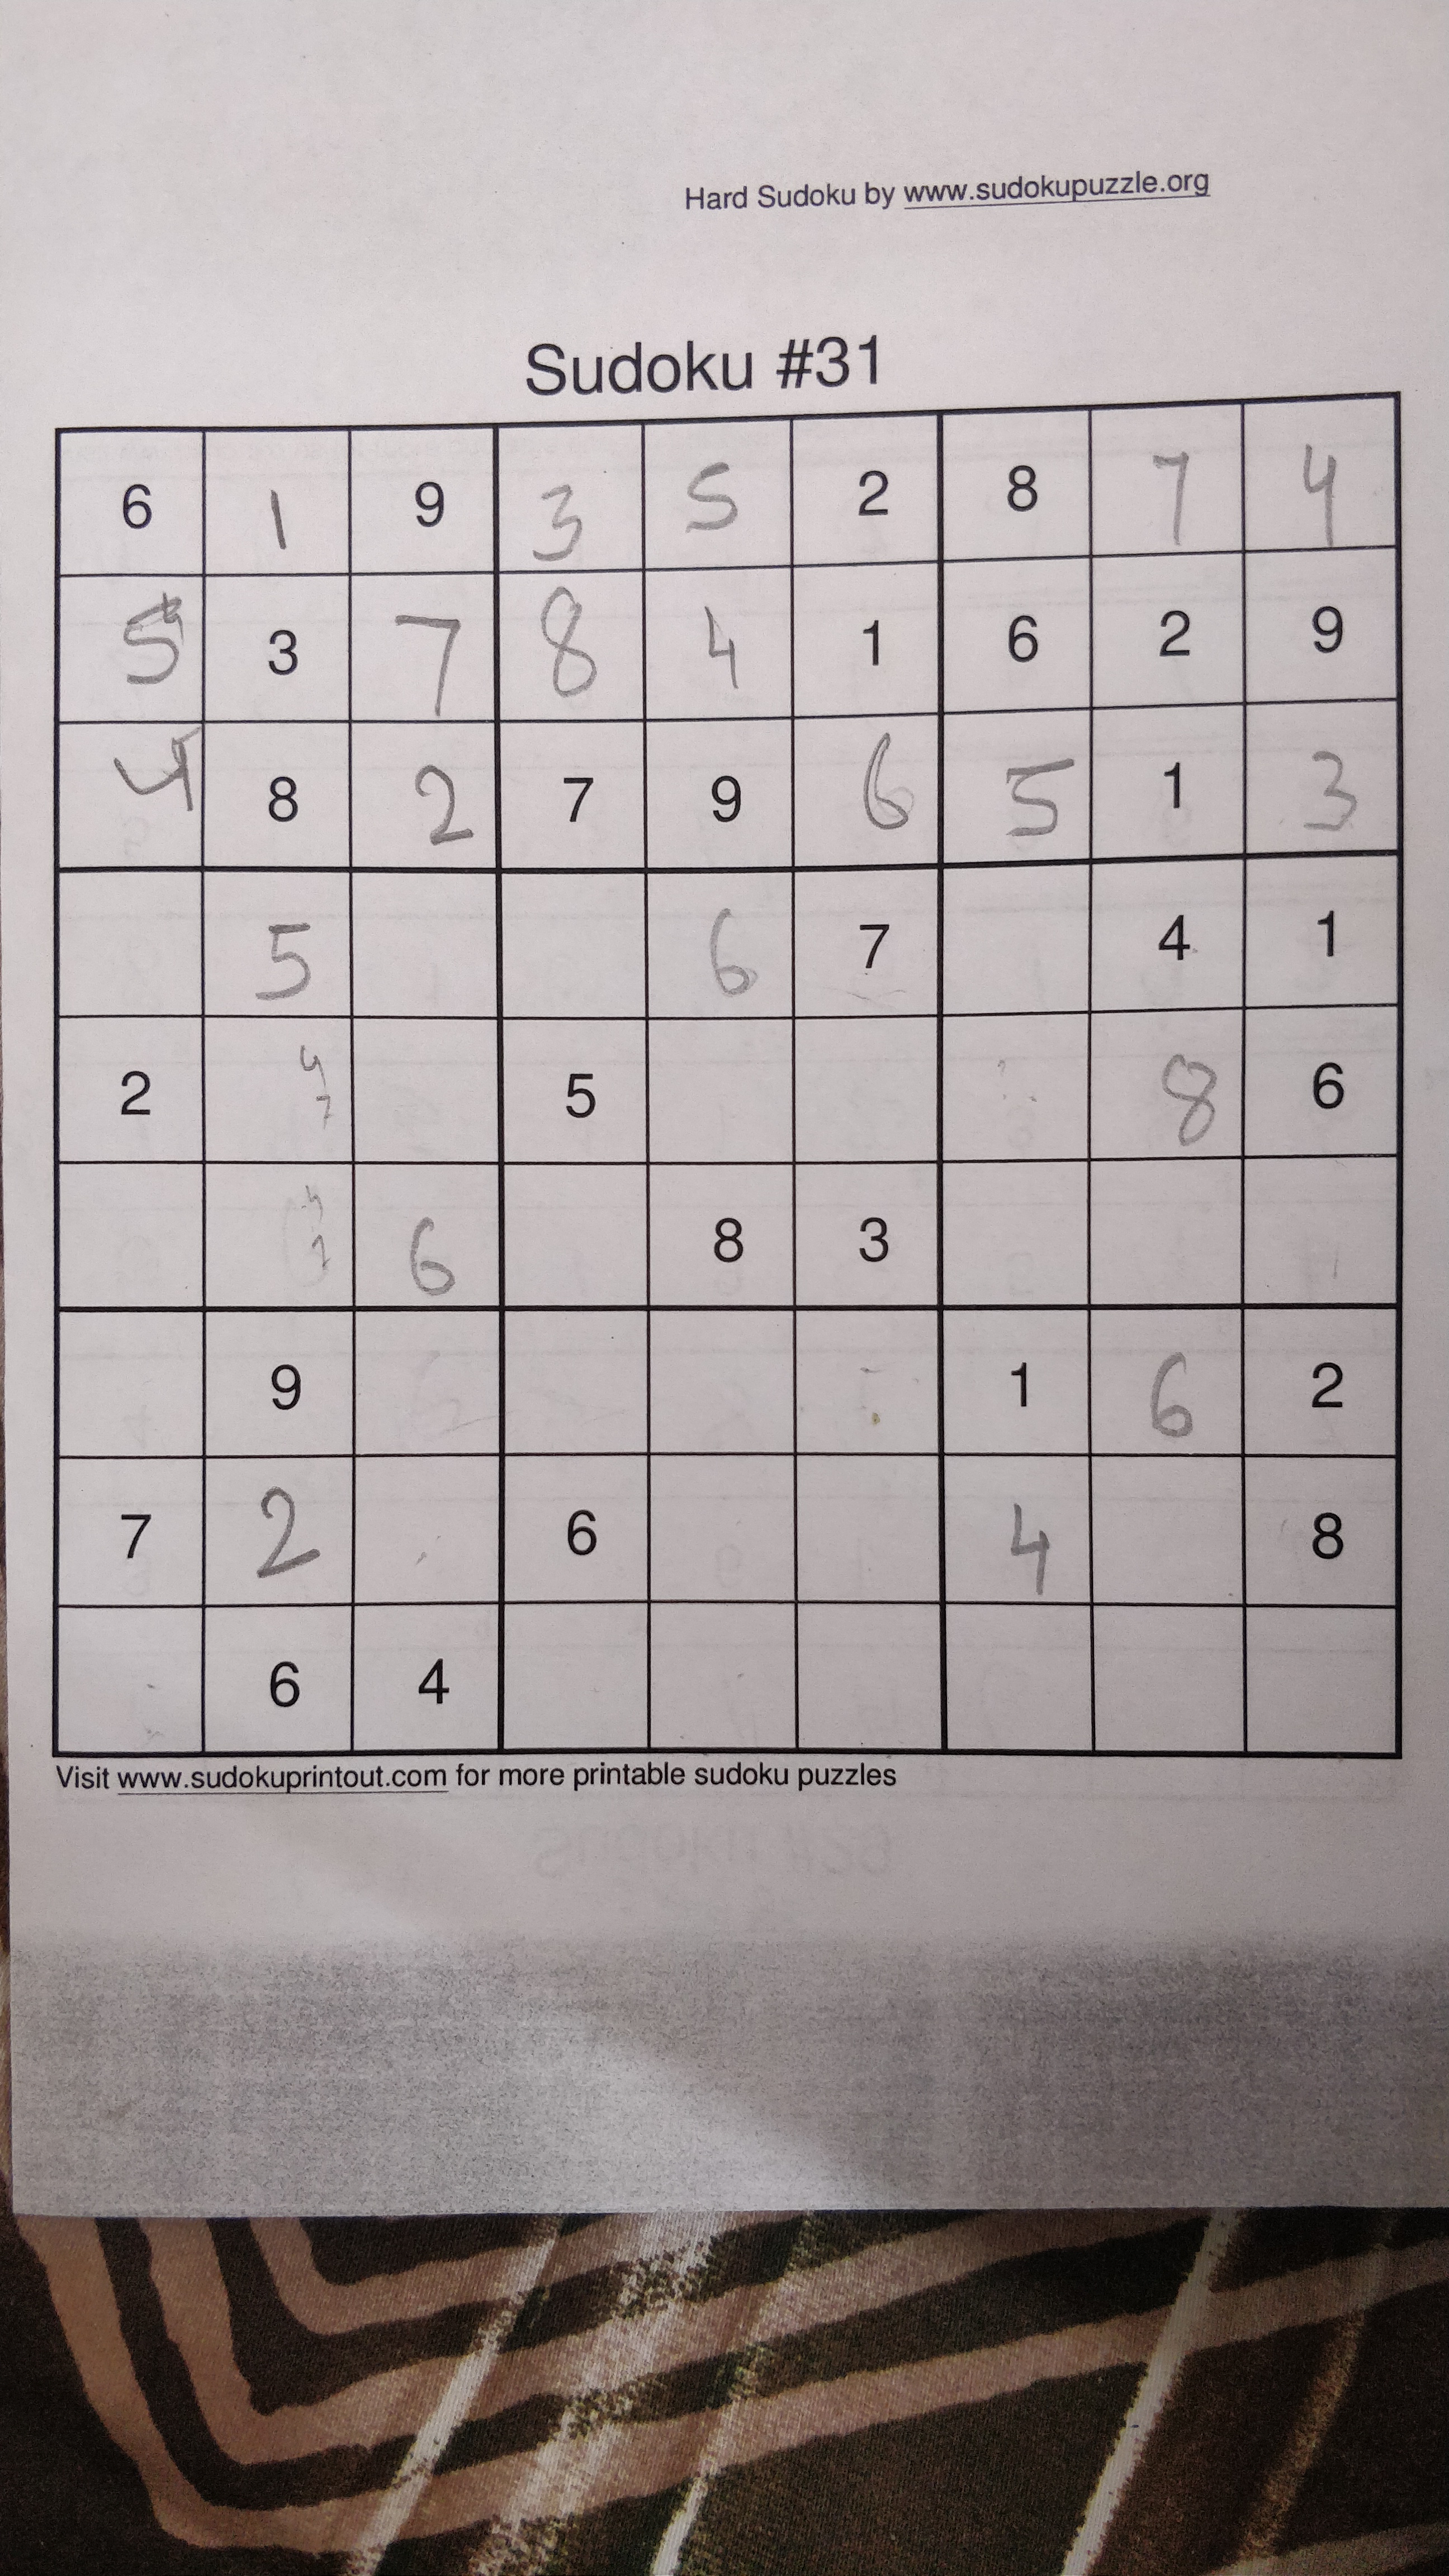 Hard Sudoku by www.sudokupuzzle.org
Sudoku #31
6 1 9 3 5 2 8 7 4
5 3 7 8 4 1 6 2 9
4 8 2 7 9 6 5 1 3
5 6 7 4 1
2 4 7 5 8 6
6 8 3
9 1 6 2
7 2 6 4 8
6 4
Visit www.sudokuprintout.com for more printable sudoku puzzles